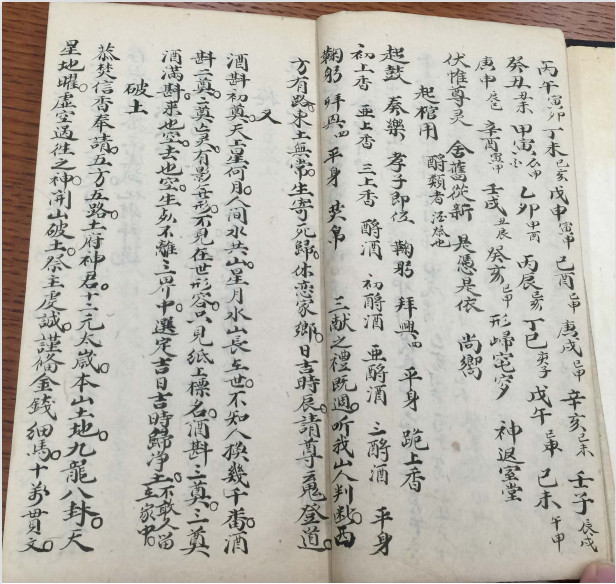 丙午寅卯 丁未巳亥 戊申寅甲 己酉 庚戌 辛亥 壬子辰戌
癸丑丑未 甲寅 乙卯甲酉 丙辰亥 丁巳 戊午 己未午甲
庚申 辛酉寅甲 壬戌丑辰 癸亥 形歸宅穸 神返室堂
伏惟尊灵 舍舊從新 是憑是依 尚嚮
起棺用 酹類者
起鼓 奏樂 孝子即位 鞠躬 拜興四 平身 跪上香
初上香 亚上香 三上香 酹酒 初酹酒 亚酹酒 三酹酒 平身
鞠躬 拜興四 平身 焚帛 三献之禮既週 听我山人判断 西
方有路 東土無常 生寄死歸 休恋家鄉 日吉時辰 請尊灵魂登道
又
酒斟初奠天上星何月 人间水共山 星月水山長在世 不知人换幾千番 酒
斟二奠 二奠灵 有影無形不見 在世形容 只見紙上標名 酒斟三奠 三奠
酒滿斟 来也空 去也空 生死不離三界中 選定吉日吉時歸净土 不敢人留在家中
破土
恭焚信香奉請 五方五路土府神君 十二元太歲 本山土地 九龍八卦 天
星地曜 虚空過往之神 開山破土 祭主虔誠 謹備金錢 细馬十萬貫文